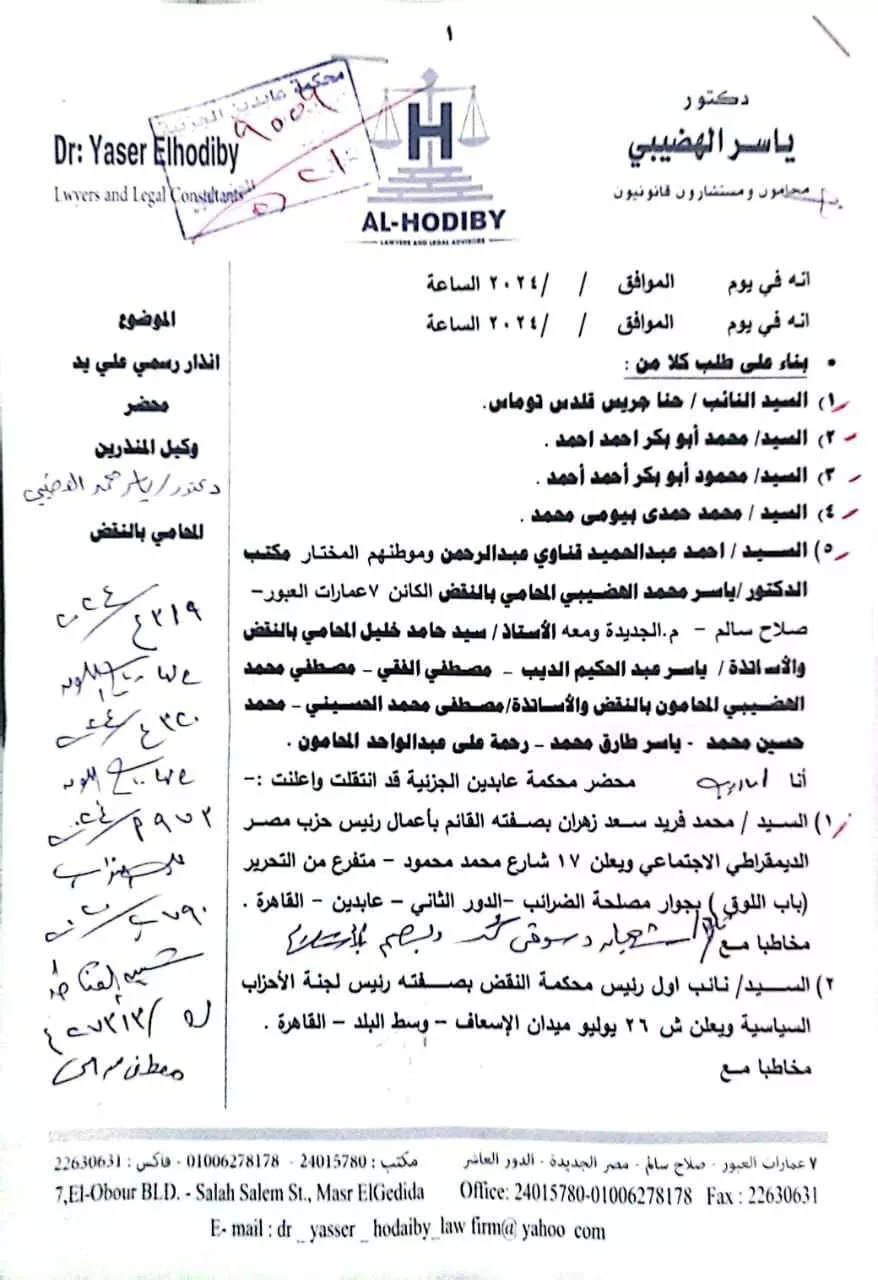 ١
محكمة عابدين الجزئية
Dr: Yaser Elhodiby
Lwyers and Legal Consultants
H
AL-HODIBY
LAWYERS AND LEGAL ADVISORS
دكتور
ياسر الهضيبي
محامون ومستشارون قانونيون
انه في يوم الموافق / /٢٠٢٤ الساعة
انه في يوم الموافق / /٢٠٢٤ الساعة
• بناء على طلب كلا من :
١) السيد النائب / حنا جريس قلدس توماس.
٢) السيد/ محمد أبو بكر احمد احمد .
٣) السيد/ محمود أبو بكر أحمد أحمد .
٤) السيد / محمد حمدى بيومى محمد .
٥) السيد / احمد عبدالحميد قناوي عبدالرحمن وموطنهم المختار مكتب
الدكتور /ياسر محمد الهضيبي المحامي بالنقض الكائن ٧عمارات العبور-
صلاح سالم - م.الجديدة ومعه الأستاذ/ سيد حامد خليل المحامي بالنقض
والأساتذة/ ياسر عبد الحكيم الديب - مصطفي الفقي - مصطفي محمد
الهضيبي المحامون بالنقض والأساتذة/مصطفى محمد الحسيني - محمد
حسين محمد - ياسر طارق محمد - رحمة على عبدالواحد المحامون .
أنا محضر محكمة عابدين الجزئية قد انتقلت واعلنت :-
١) السيد / محمد فريد سعد زهران بصفته القائم بأعمال رئيس حزب مصر
الديمقراطي الاجتماعي ويعلن ١٧ شارع محمد محمود - متفرع من التحرير
(باب اللوق ) بجوار مصلحة الضرائب -الدور الثاني - عابدين - القاهرة .
مخاطبا مع
٢) السيد/ نائب اول رئيس محكمة النقض بصفته رئيس لجنة الأحزاب
السياسية ويعلن ش ٢٦ يوليو ميدان الإسعاف - وسط البلد - القاهرة .
مخاطبا مع
الموضوع
انذار رسمي علي يد
محضر
وكيل المنذرين
دكتور/ ياسر محمد الهضيبي
المحامي بالنقض
٧ عمارات العبور - صلاح سالم - مصر الجديدة - الدور العاشر
مكتب : 24015780 - 01006278178 - فاكس : 22630631
7,El-Obour BLD. - Salah Salem St., Masr ElGedida
Office: 24015780-01006278178 Fax : 22630631
E- mail : dr _ yasser _ hodaiby_law firm@ yahoo com